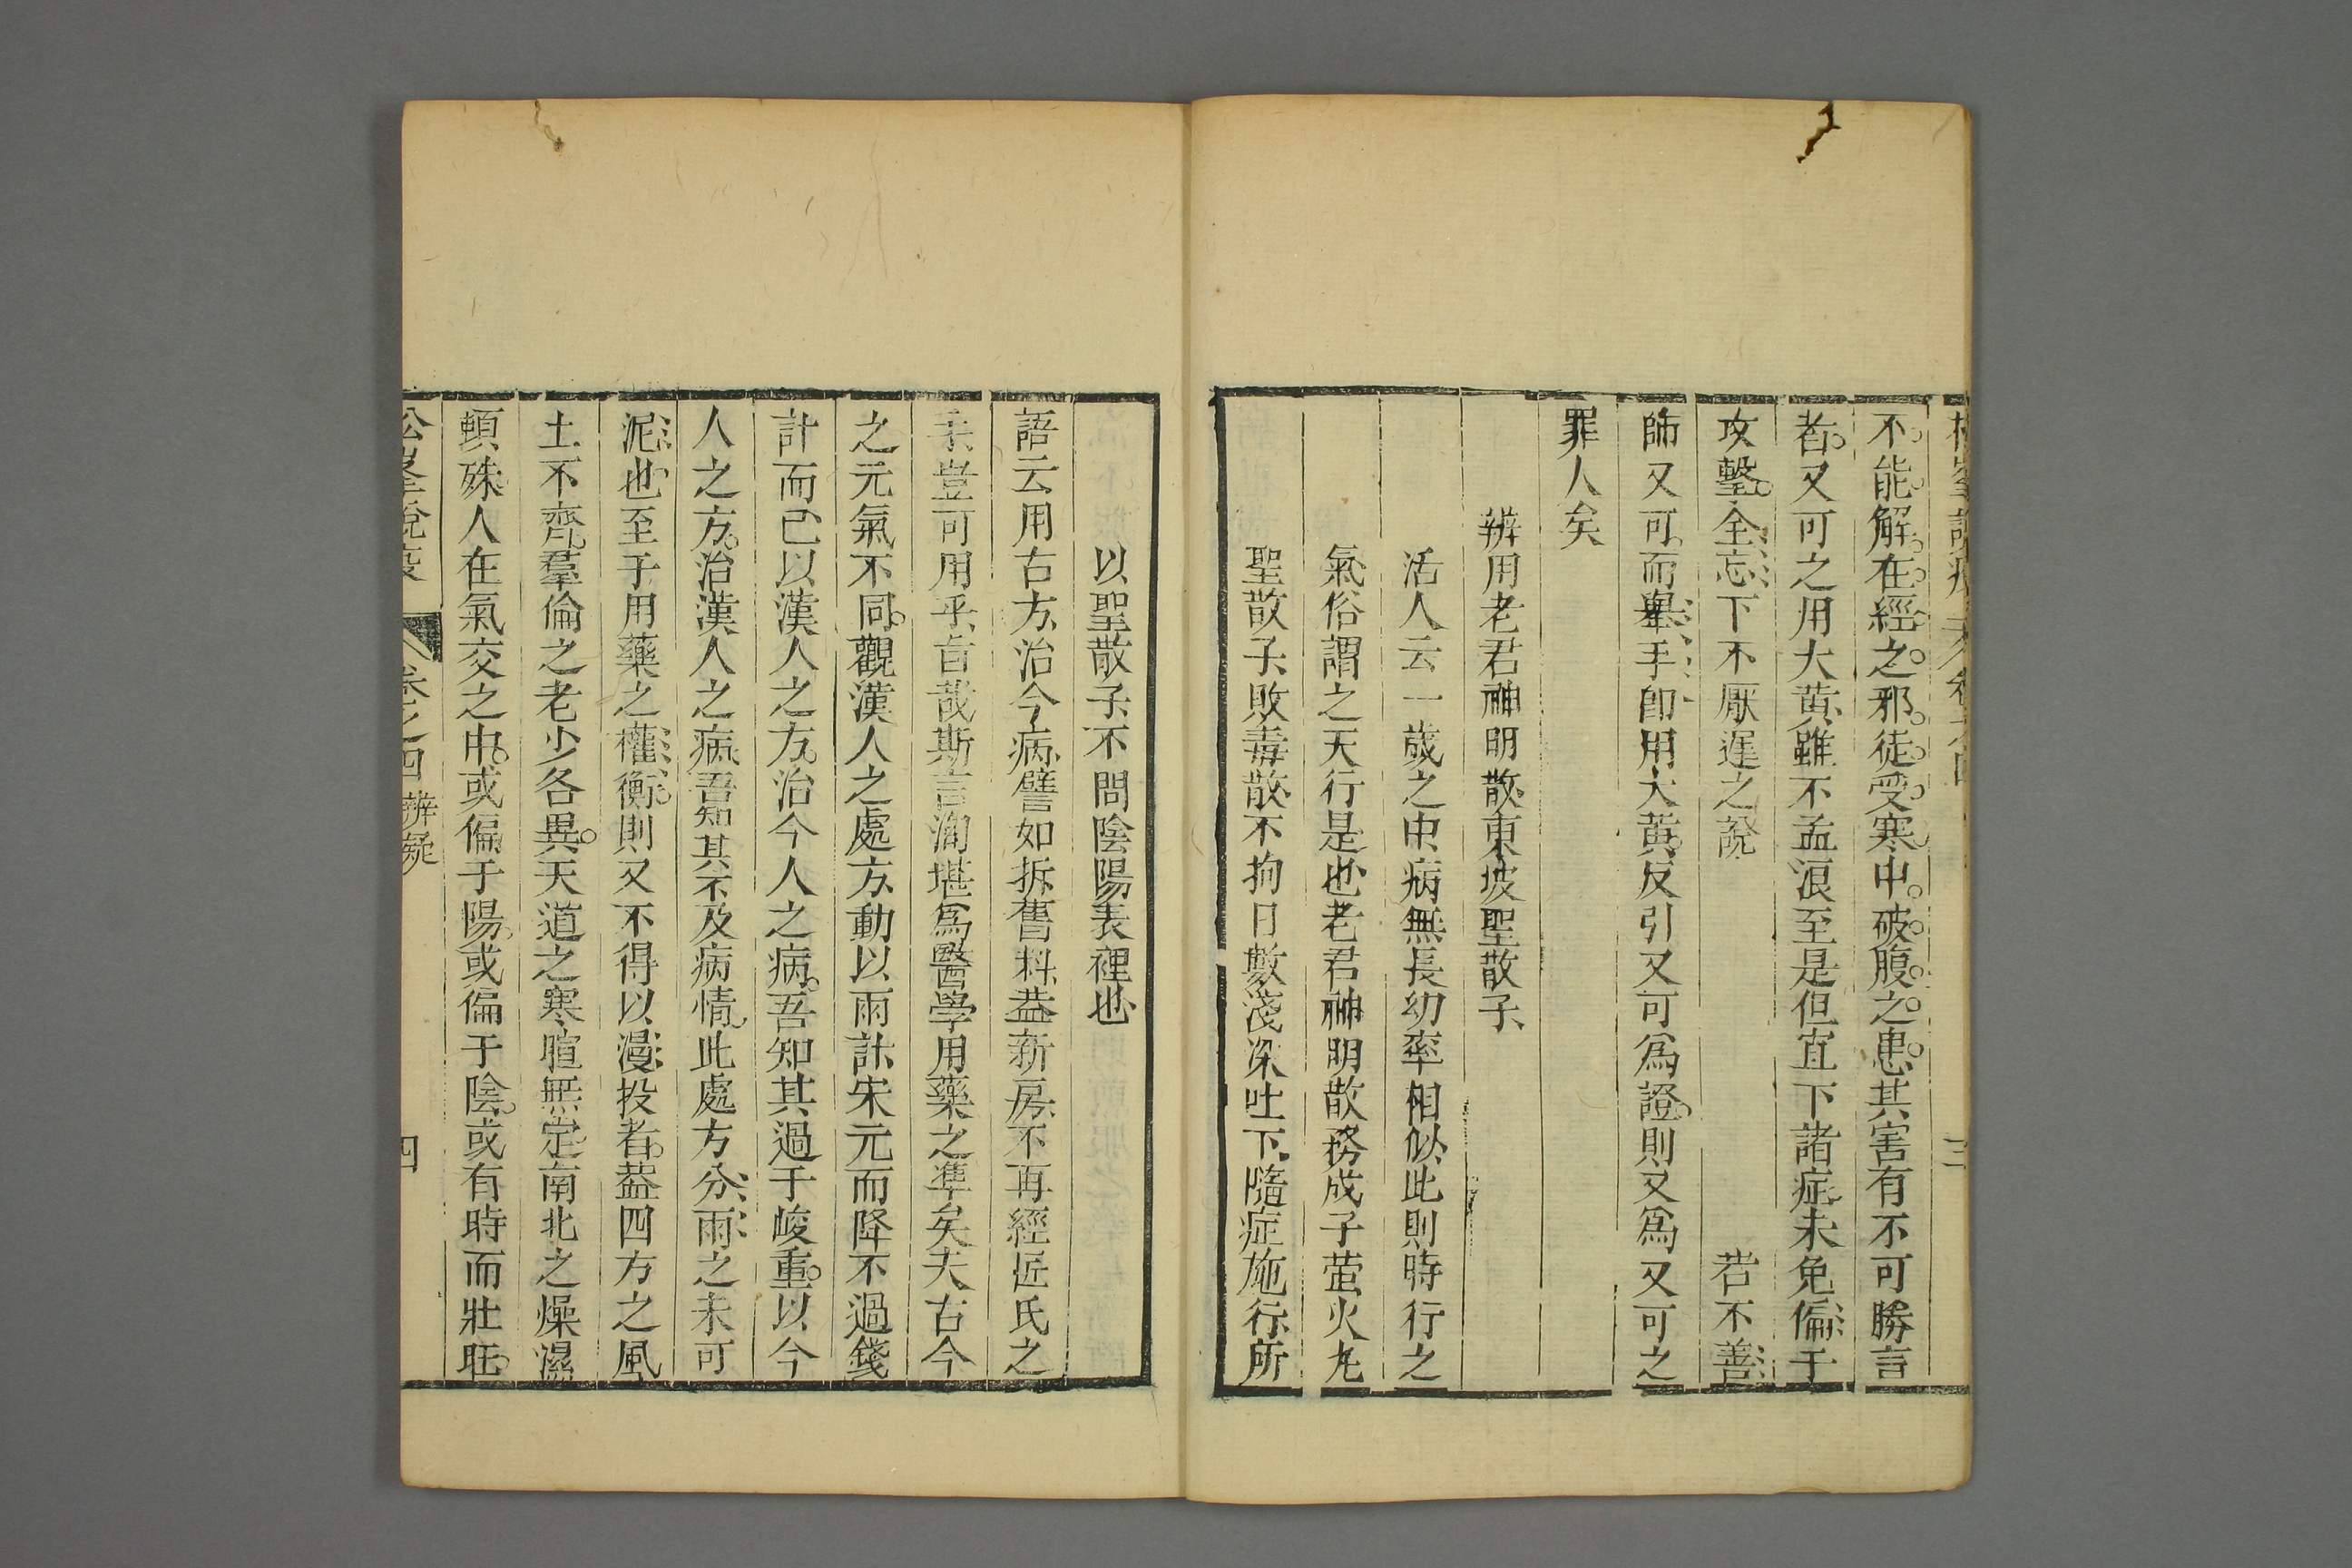 松峯說疫 卷之四 三
不能解在經之邪徒受寒中破腹之患其害有不可勝言
者又可之用大黃雖不孟浪至是但宜下諸症未免偏于
攻擊全忘下不厭遲之說 若不善
師又可而舉手卽用大黃反引又可爲證則又爲又可之
罪人矣
辨用老君神明散東坡聖散子
活人云一歲之中病無長幼率相似此則時行之
氣俗謂之天行是也老君神明散務成子螢火丸
聖散子敗毒散不拘日數淺深吐下隨症施行所
以聖散子不問陰陽表裡也
語云用古方治今病譬如拆舊料葢新房不再經匠氏之
手豈可用乎旨哉斯言洵堪爲醫學用藥之準矣夫古今
之元氣不同觀漢人之處方動以兩計宋元而降不過錢
計而已以漢人之方治今人之病吾知其過于峻重以今
人之方治漢人之病吾知其不及病情此處方分兩之未可
泥也至于用藥之權衡則又不得以漫投者葢四方之風
土不齊羣倫之老少各異天道之寒暄無定南北之燥濕
頓殊人在氣交之中或偏于陽或偏于陰或有時而壯旺
松峯說疫 卷之四 辨疑 四